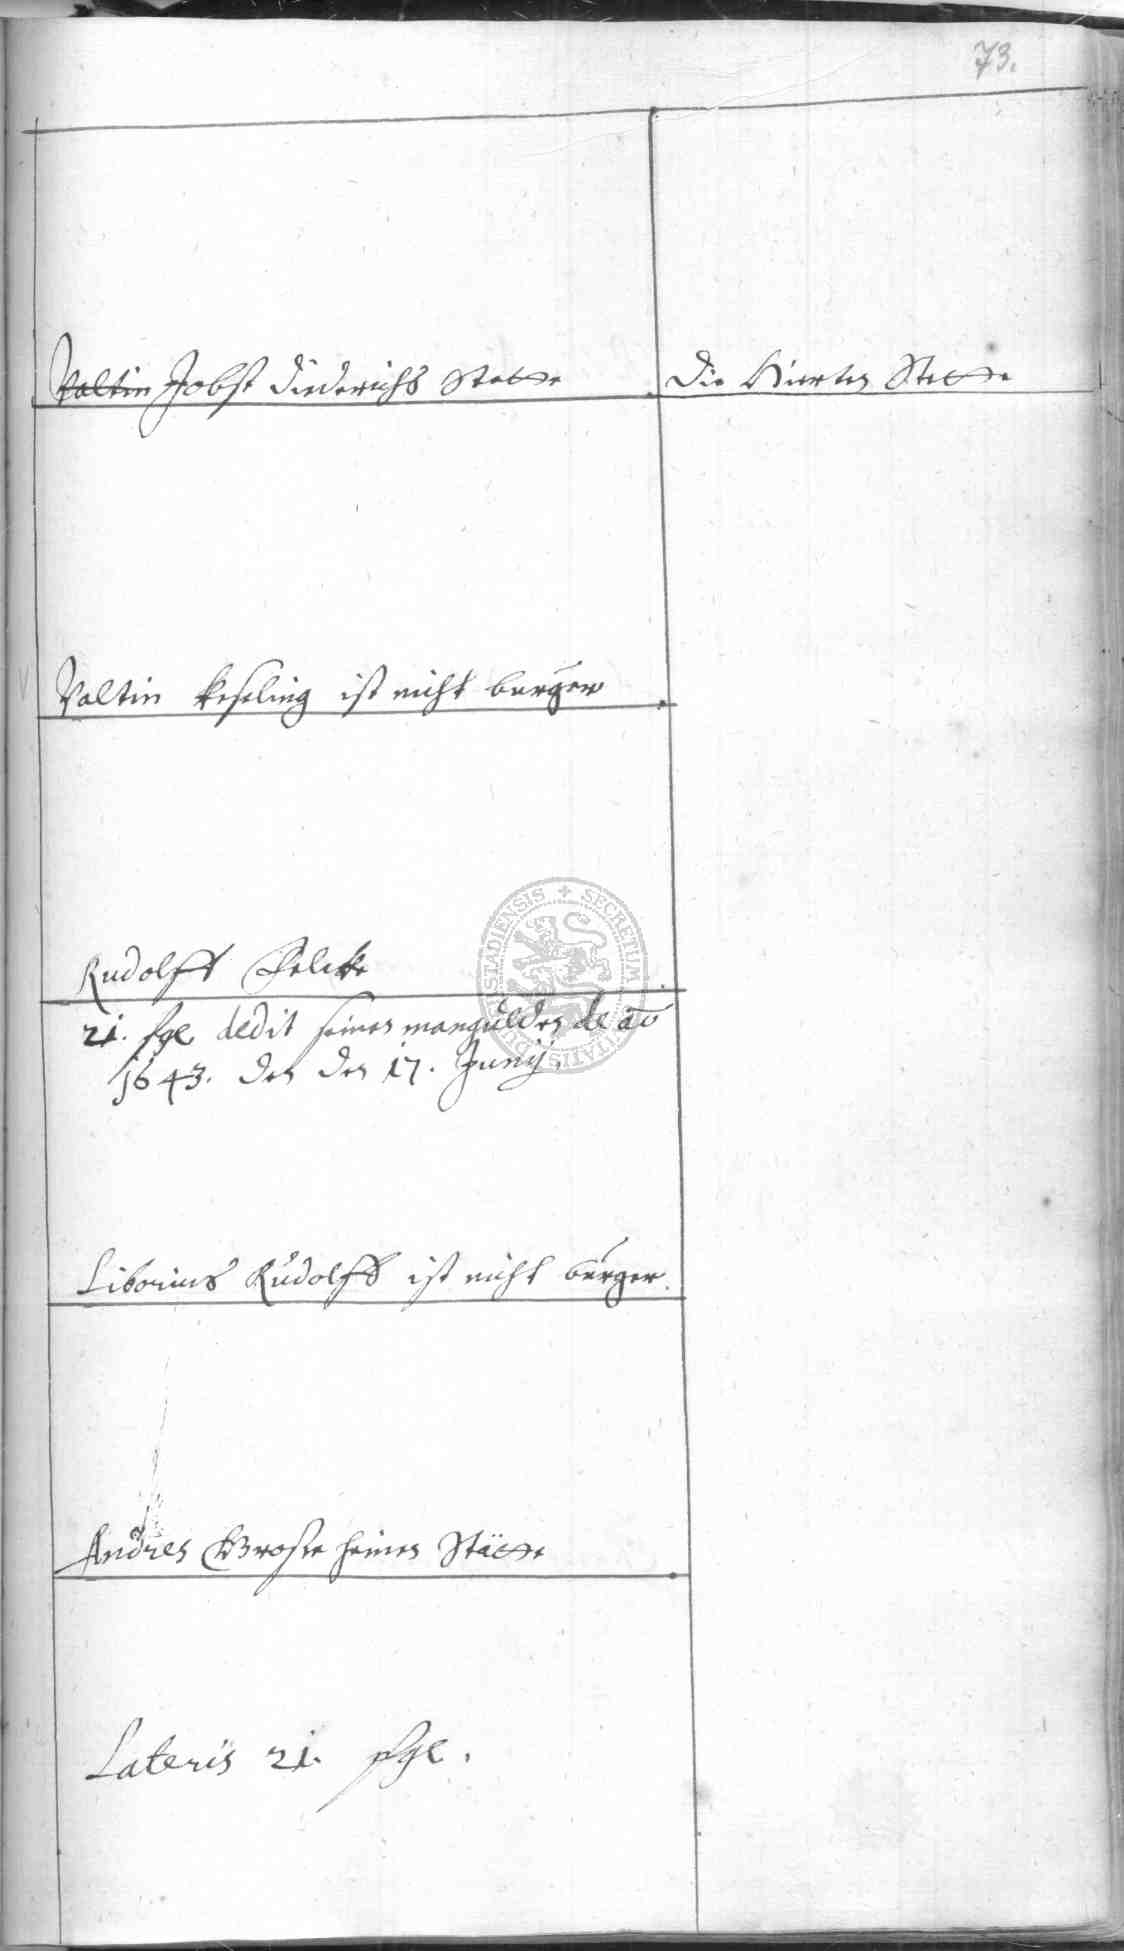 73.
Valtin Jobst Diederichs Stette
Die Vierten Stette
Valtin Keseling ist nicht burger
Rudolff
21. sgl dedit seinen manguldē de ao
1643. den den 17. Junij.
Liborius Rudolff ist nicht burger.
Andres Große seines Stätte
Lateris 21. sgl.
SECRETUM CIVITATIS DUDERSTADIENSIS